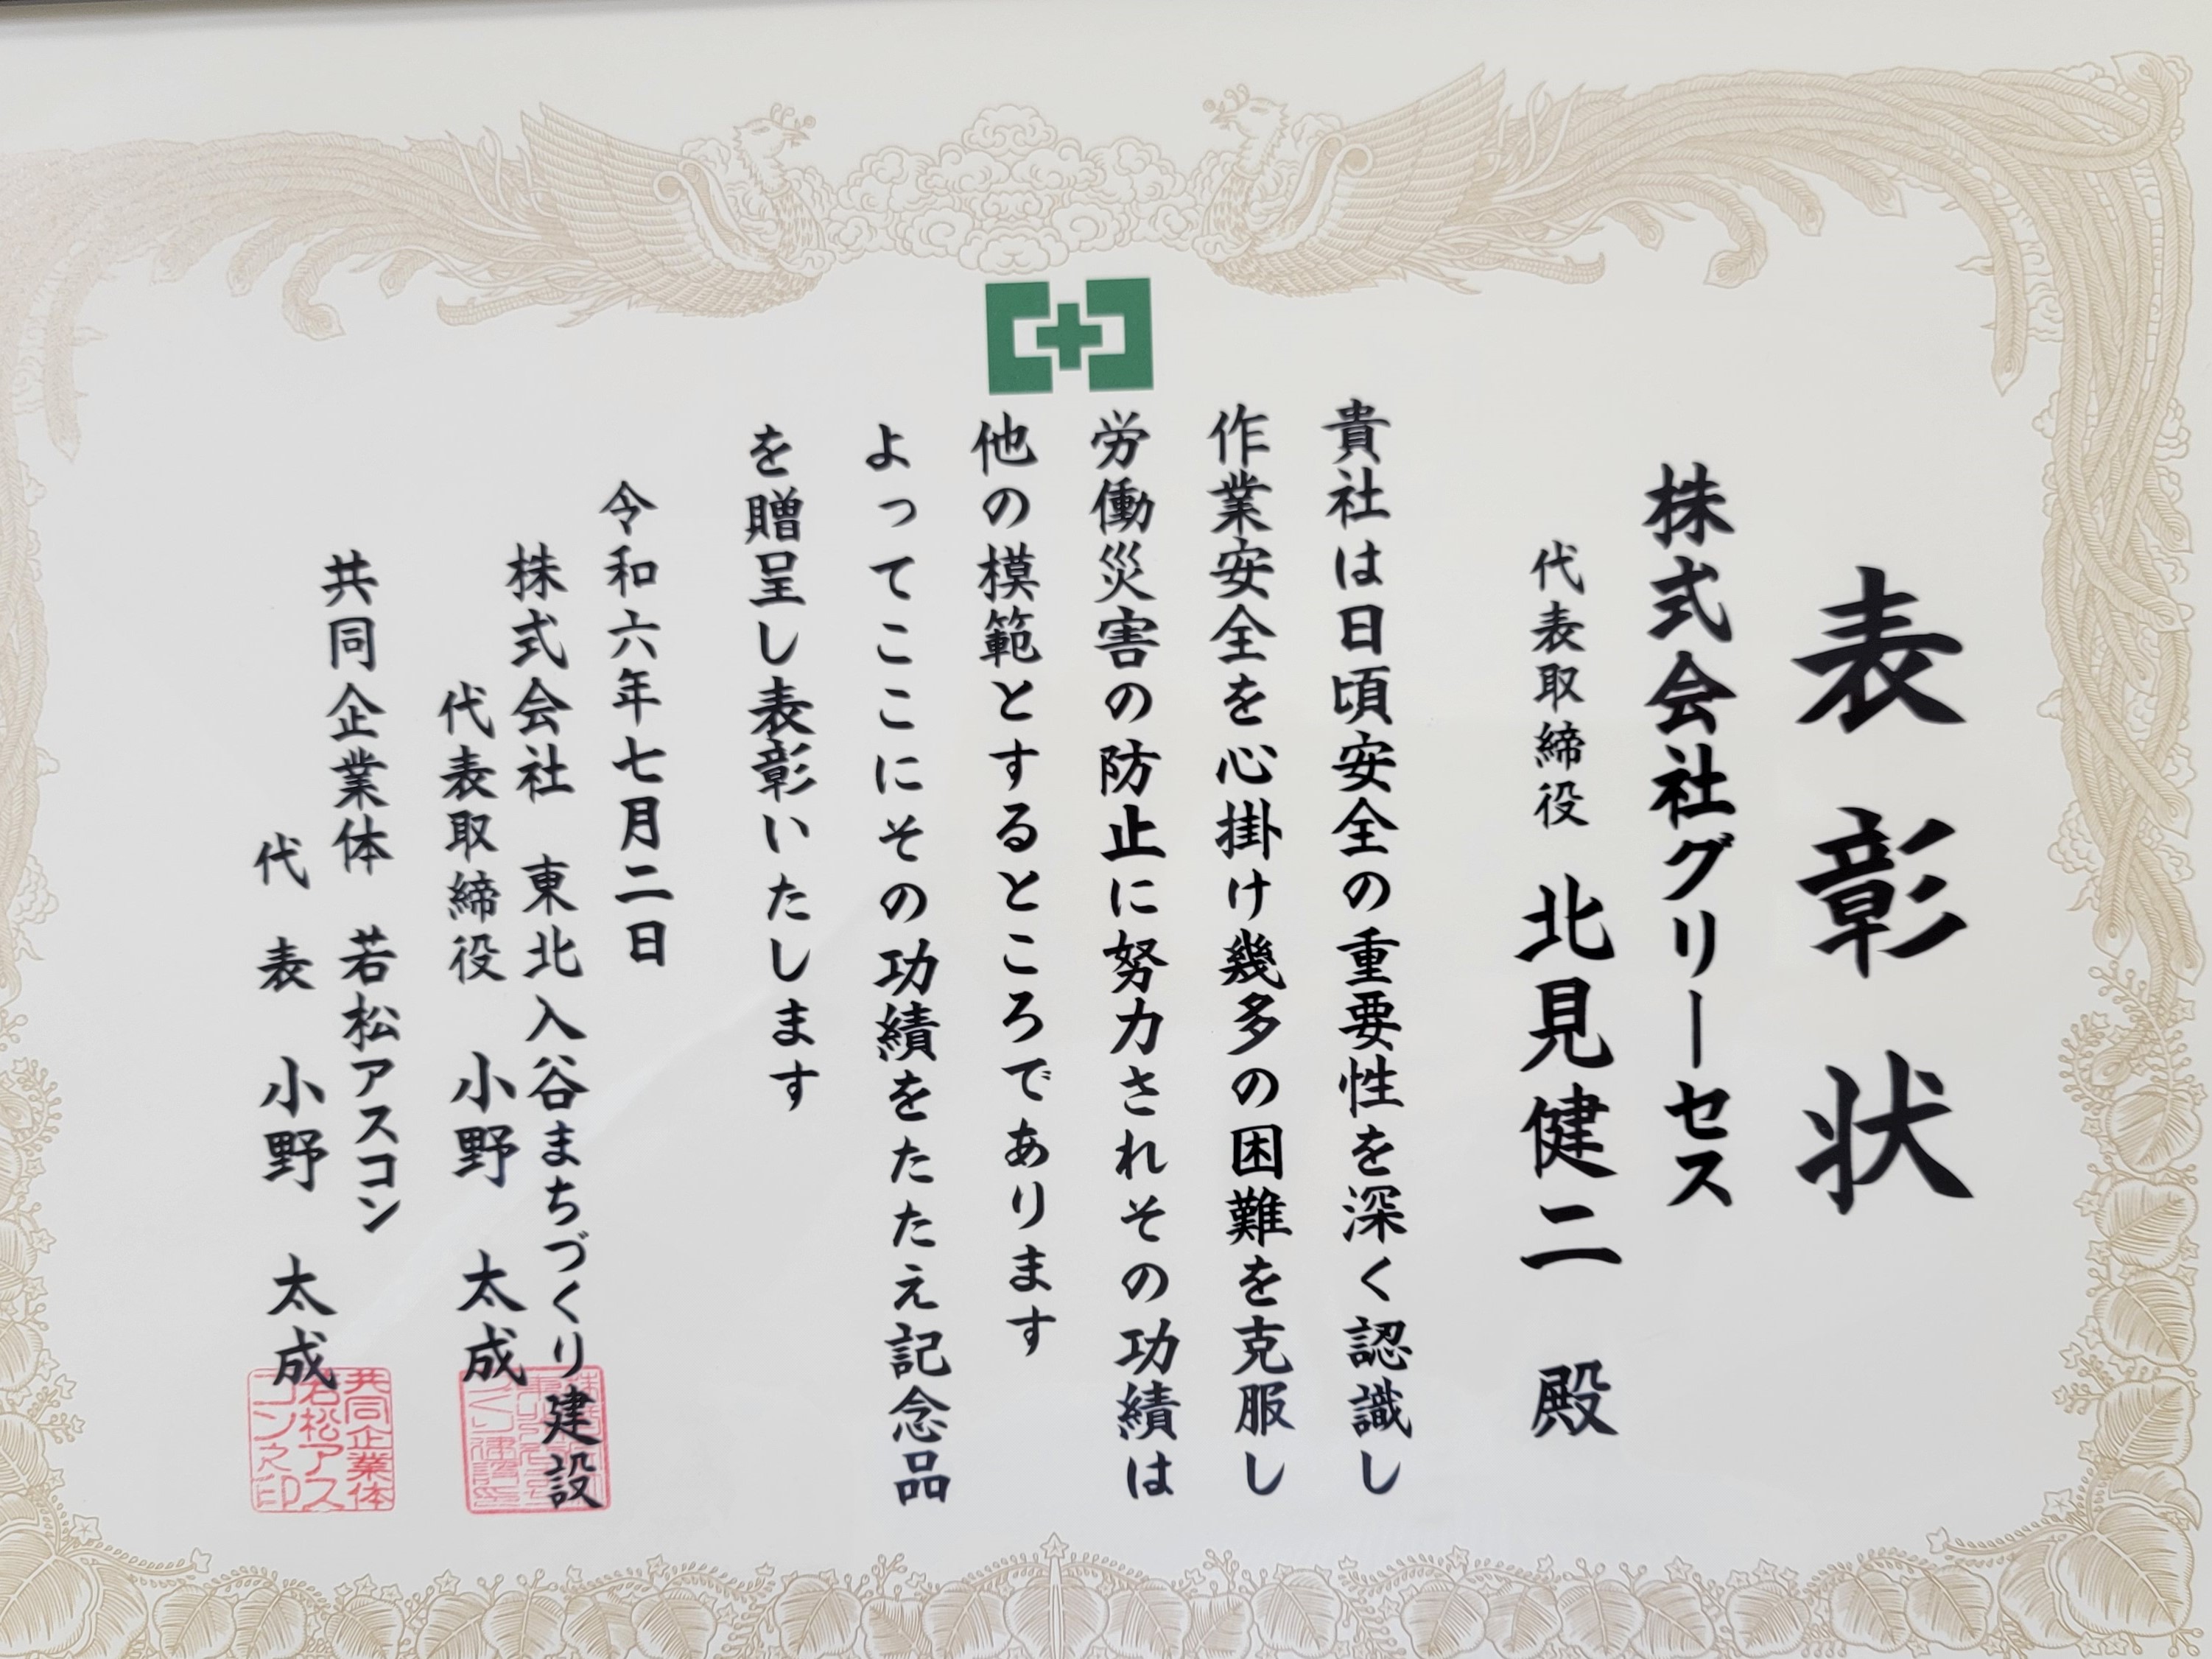 表彰状
株式会社グリーセス
代表取締役 北見健二 殿
貴社は日頃安全の重要性を深く認識し
作業安全を心掛け幾多の困難を克服し
労働災害の防止に努力されその功績は
他の模範とするところであります
よってここにその功績をたたえ記念品
を贈呈し表彰いたします
令和六年七月二日
株式会社 東北入谷まちづくり建設
代表取締役 小野 太成
共同企業体 若松アスコン
代表 小野 太成
共同企業体
若松アス
コン之印